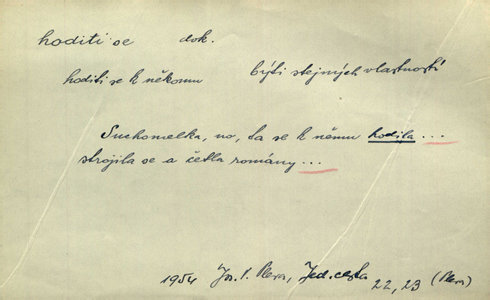 hoditi se dok.
hoditi se k někomu býti stejných vlastností
Suchomelka, no, ta se k němu hodila ...
strojila se a četla romány ...
1954 Jos. V. Pleva, Jed. cesta 22, 23 (Pleva)